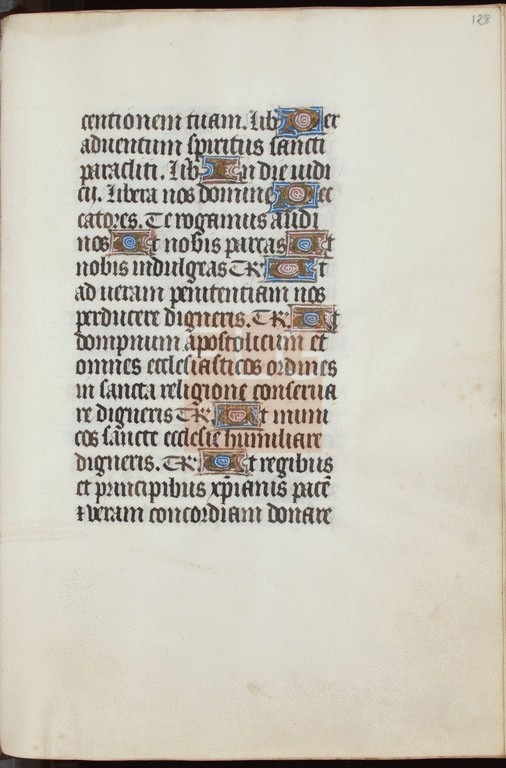 128
centionem tuam. Lib Per
aduentum spiritus sancti
paracliti. Lib In die iudi
cij. Libera nos domine Pec
catores. Te rogamus audi
nos Vt nobis parcas Vt
nobis indulgeas T R Vt
ad ueram penitentiam nos
perducere digneris. T R. Vt
dompnum apostolicum et
omnes ecclesiasticos ordines
in sancta religione conserua
re digneris T R Vt inimi
cos sancte ecclesie humiliare
digneris. T R Vt regibus
et principibus xp̄ianis pacē
⁊ veram concordiam donare